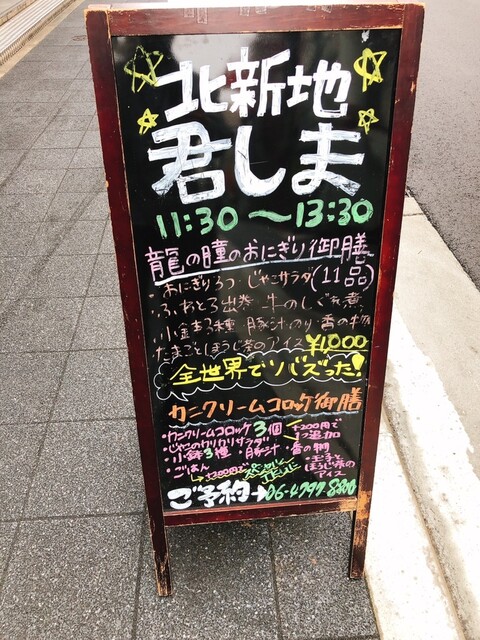 北新地
君しま
11:30〜13:30
龍の瞳のおにぎり御膳
・おにぎり3つ・じゃこサラダ(11品)
・ふわとろ出巻・牛のしぐれ煮
・小金本3種・豚汁・のり・香の物
たまごとほうじ茶のアイス ¥1,000
全世界でリバズった!
カニクリームコロッケ御膳
・カニクリームコロッケ3個
+200円で
1つ追加
・じゃこのカリカリサラダ
・小鉢3種・豚汁・香の物
・ごはん
・玉子と
ほうじ茶の
アイス
ご予約→06-4797-8800